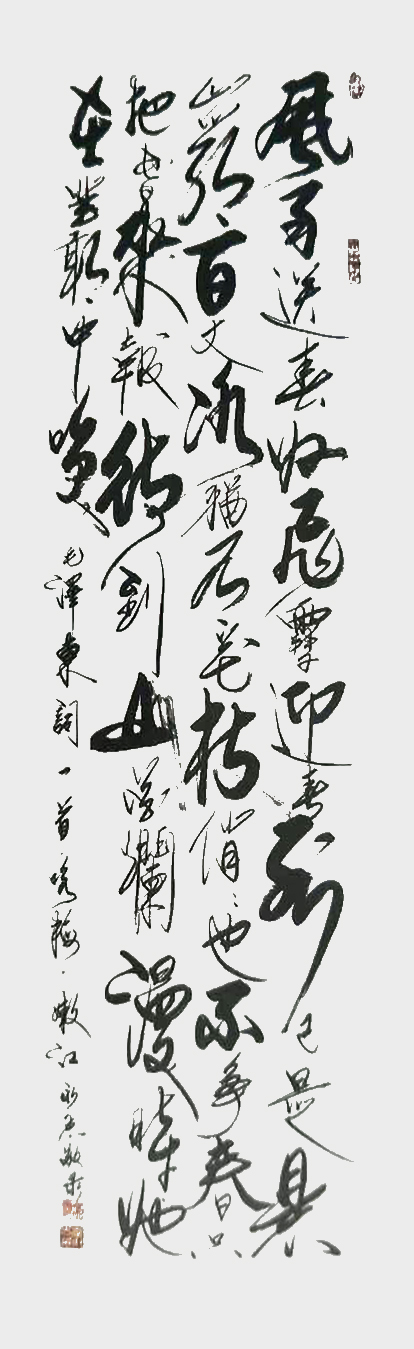 風雨送春歸飛雪迎春到已是懸
崖百丈冰猶有花枝俏〻也不爭春只
把春來報待到山花爛漫時她
在叢中笑 毛澤東詞一首咏梅 嫩江